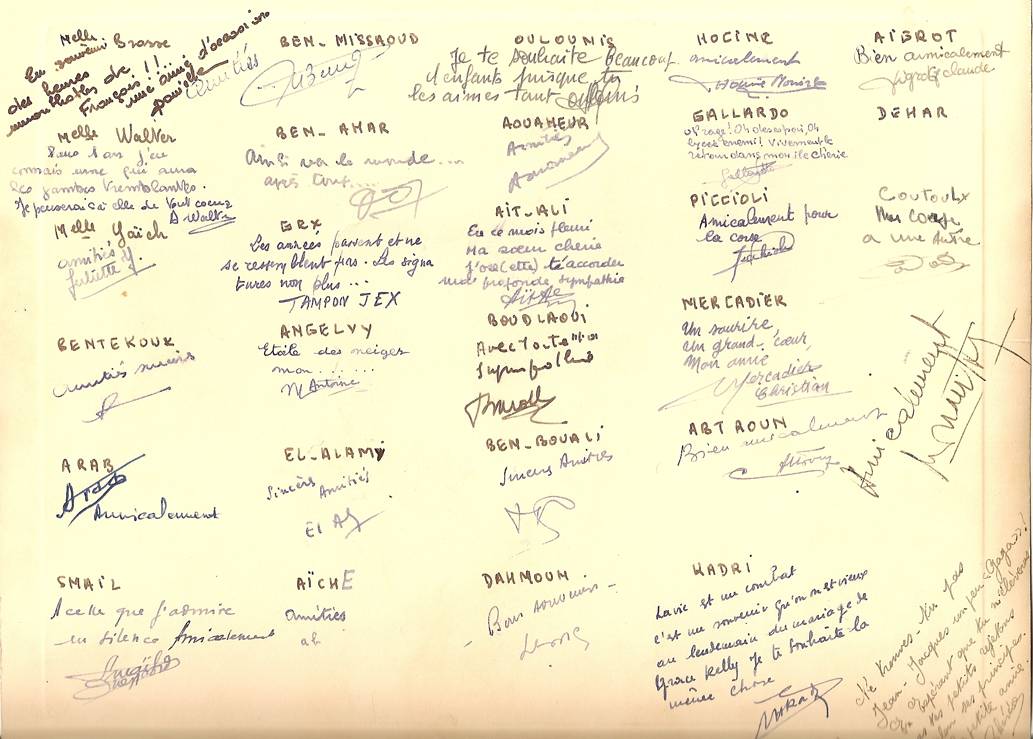 Melle Brosse
En souvenir
des heures
inoubliables de
Français !!..
une amie d'occasion
Danielle
Amitiés
BEN-MISSAOUD
OULOUNIS
Je te souhaite beaucoup
d'enfants puisque tu
les aimes tant
HOCINE
amicalement
AIGROT
Bien amicalement
Aigrot Claude
Melle Walter
Dans 1 an j'en
connais une qui aura
les jambes tremblantes.
Je penserai à elle de tout coeur
D Walter
BEN-AMAR
Ainsi va le monde...
après tout....
AOUAMEUR
Amitiés
GALLARDO
O rage! Oh desespoir, Oh
lycée ennemi! Vivement le
retour dans mon île chérie
Gallardo
DEHAR
Melle Yaïch
amitiés
Juliette Y.
GEX
Les années passent et ne
se ressemblent pas. Les signa
tures non plus...
TAMPON JEX
AIT-ALI
En ce mois fleuri
Ma soeur chérie
J'ose (ette) t'accorder
ma profonde sympathie
PICCIOLI
Amicalement pour
la corse
COUTOULX
Mon
à une Autre
BENTEKOUK
Amitiés
ANGELVY
Etoile des neiges
mon......
Antoine
BOUDLAOUI
Avec toute
Sympathie
MERCADIER
Un sourire,
Un grand coeur,
Mon amie
Mercadier
Christian
Amicalement
ARAB
Arab
Amicalement
EL-ALAMI
Sincères Amitiés
El Al
BEN-BOUALI
Sincères Amitiés
ABTROUN
Bien amicalement
SMAIL
A celle que j'admire
en silence Amicalement
AÏCHE
Amitiés
DAHMOUN
- Bons souvenirs -
KADRI
La vie est un combat
c'est un souvenir qu'on m'est vieux
au lendemain du mariage de
Grace Kelly Je te souhaite la
même chose
Jean-Jacques un peu "Gaga"!
En espérant que tu n'élèveras
pas tes petits rejetons
selon ses principes.
petite amie